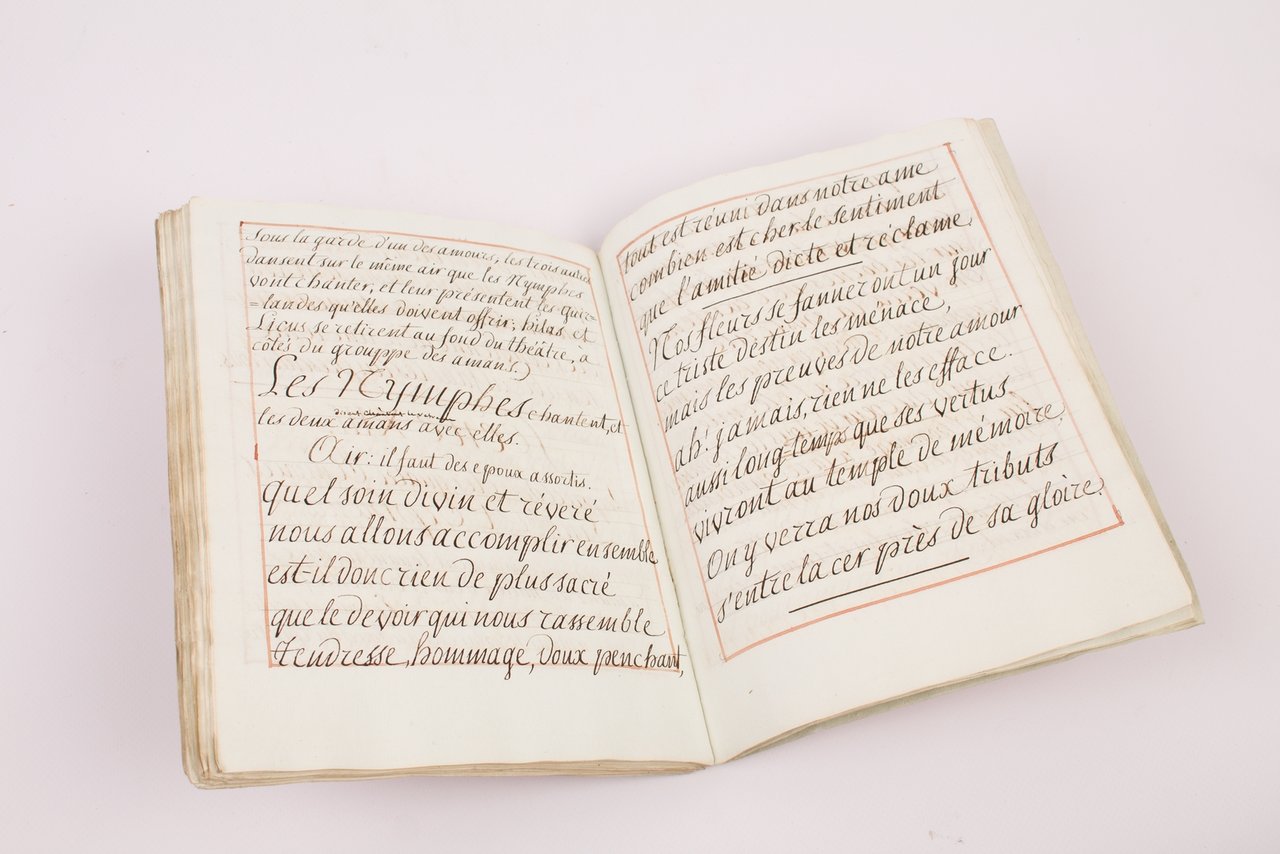 Sous la garde d'un des amours, les trois autres
dansent sur le même air que les Nymphes
vont chanter, et leur présentent les guir=
=landes qu'elles doivent offrir; hilas, et
Licus se retirent au fond du théâtre, a
côtés du grouppe des amans.)
Les Nymphes chantent, et
les deux amans avec elles.
Air: il faut des epoux assortis.
quel soin divin et révéré
nous allons accomplir ensemble
est-il donc rien de plus sacré
que le devoir qui nous rassemble
tendresse, hommage, doux penchant,
tout est réuni dans notre ame
combien est cher le sentiment
que l'amitié dicte et réclame.
Nos fleurs se fanneront un jour
ce triste destin les ménace,
mais les preuves de notre amour
ah! jamais, rien ne les efface.
aussi long temps que ses vertus.
vivront au temple de mémoire,
On y verra nos doux tributs
s'entrelacer près de sa gloire.